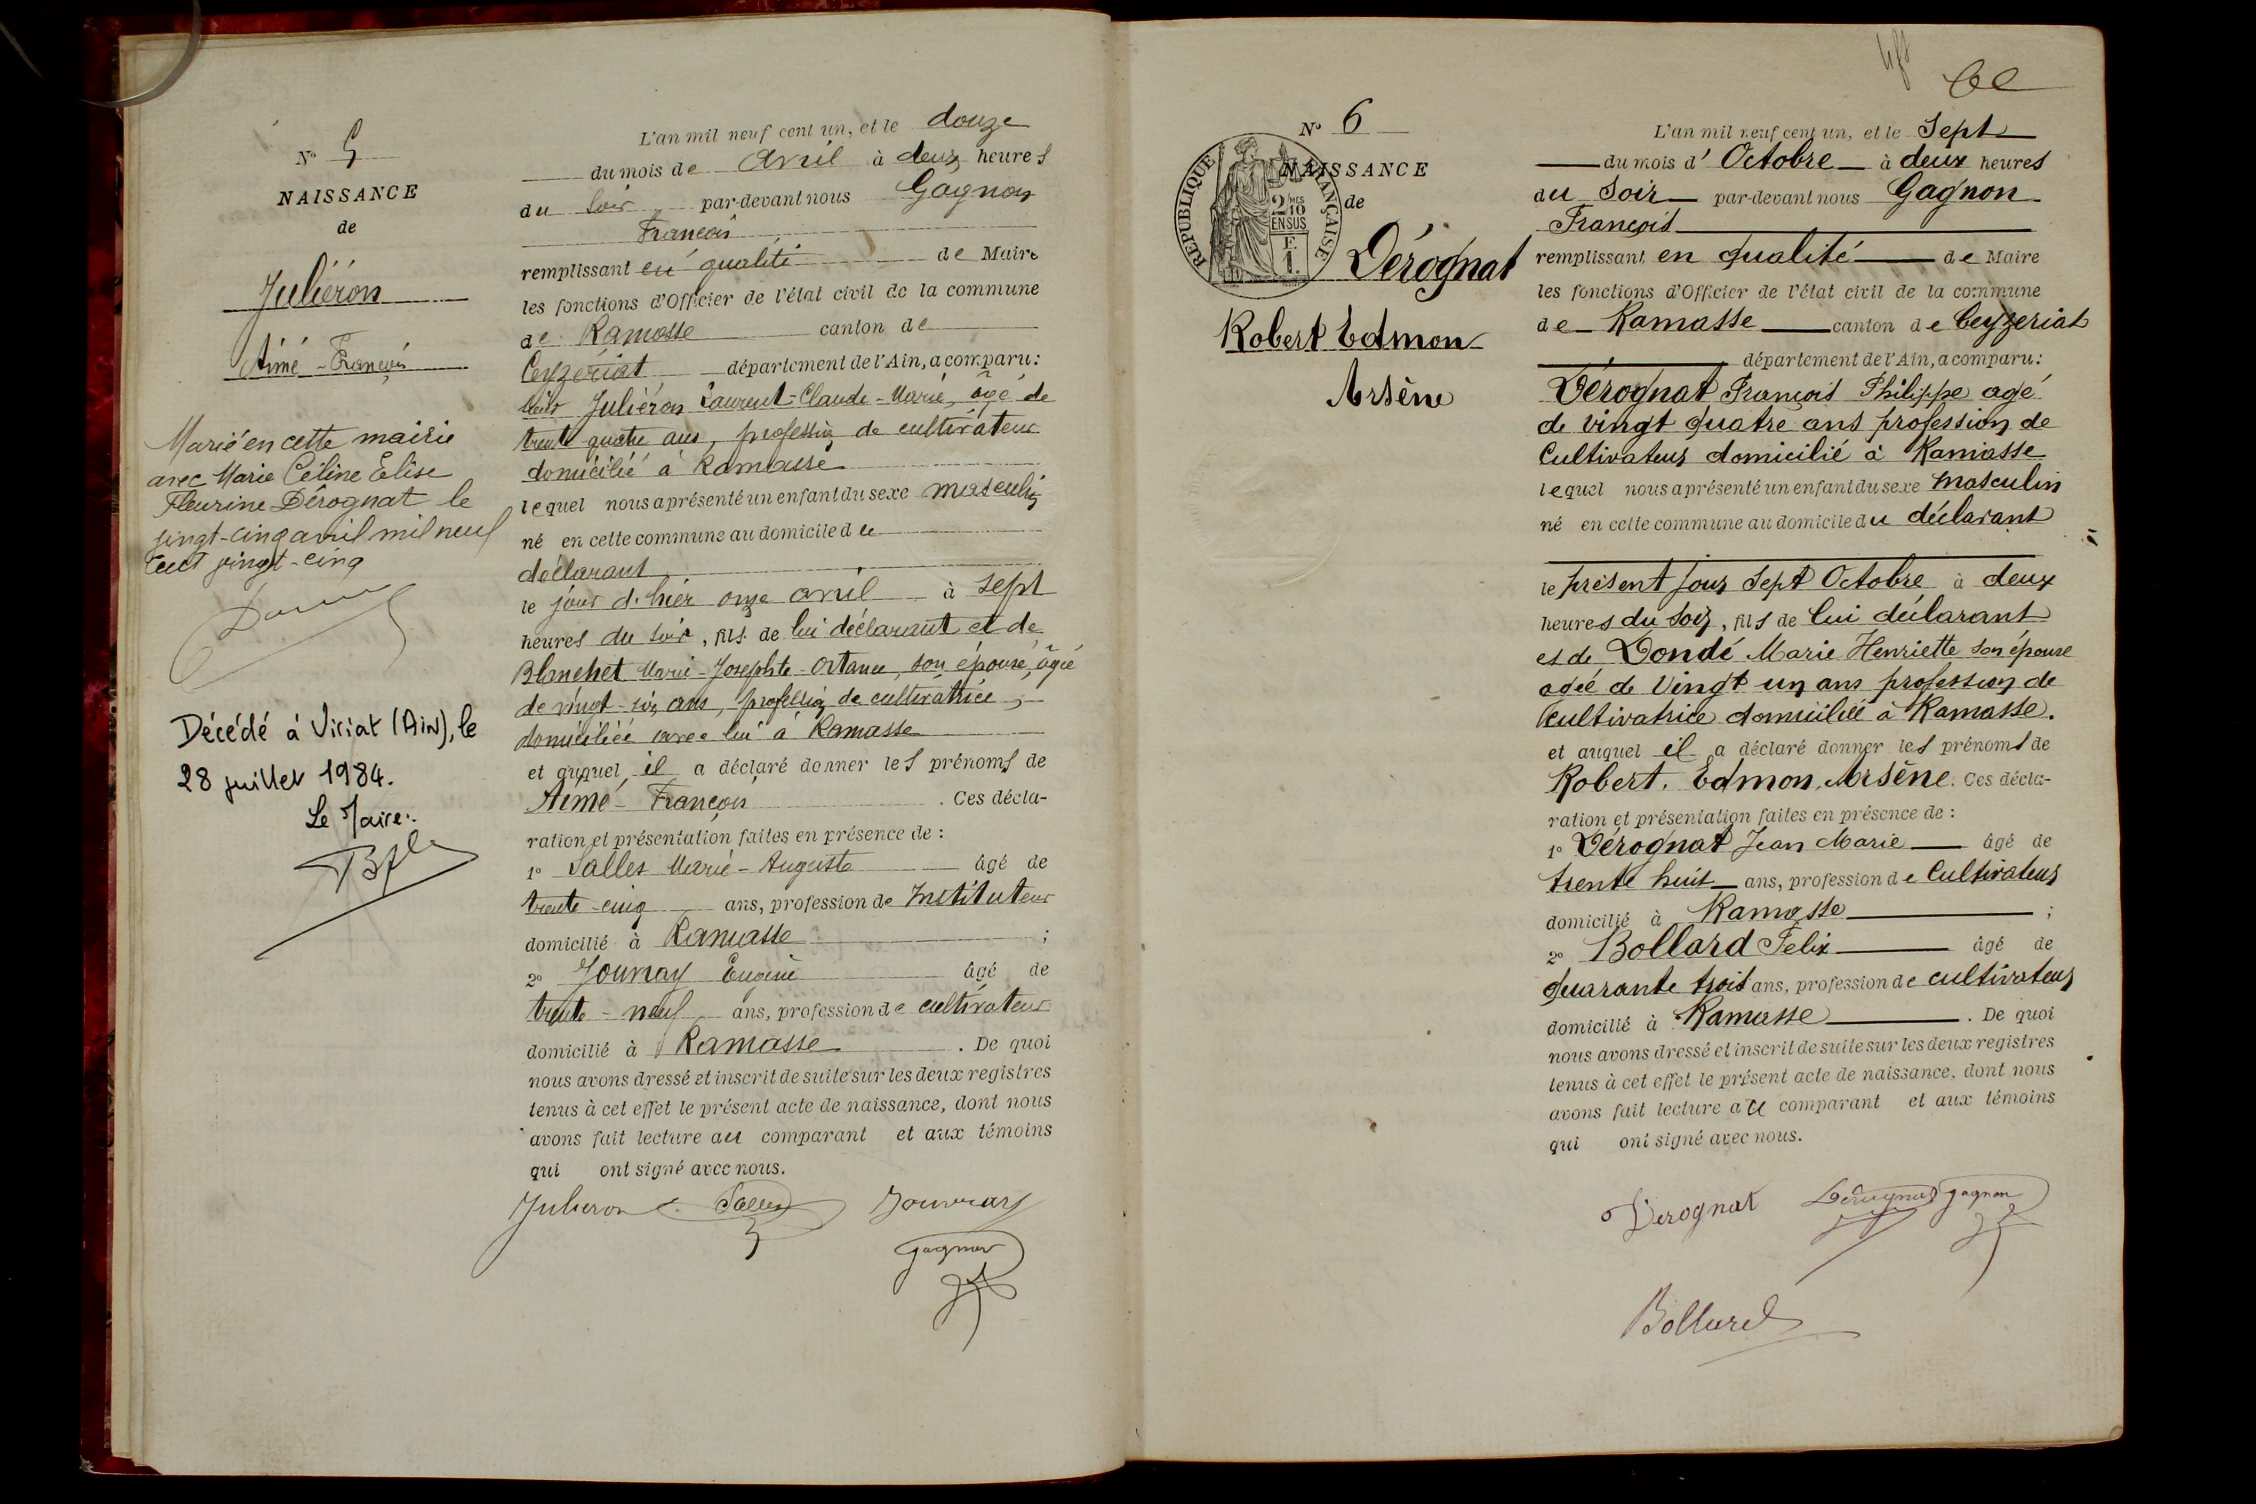 N° 5
NAISSANCE
de
Juliéron
Aimé - François
Marié en cette mairie
avec Marie Céline Elise
Fleurine Dérognat le
vingt-cinq avril mil neuf
cent vingt-cinq
Décédé à Viriat (Ain), le
28 juillet 1984.
Le Maire:
L'an mil neuf cent un, et le douze
du mois de avril à deux heures
du soir par-devant nous Gagnon
François
remplissant en qualité de Maire
les fonctions d'Officier de l'état civil de la commune
de Ramasse canton de
Ceyzériat département de l'Ain, a comparu:
Juliéron Laurent-Claude-Marie, âgé de
trente quatre ans, profession de cultivateur
domicilié à Ramasse
lequel nous a présenté un enfant du sexe masculin
né en cette commune au domicile du
déclarant
le jour d'hier onze avril à sept
heures du soir, fils de lui déclarant et de
Blanchet Marie-Josephte-Ortance, son épouse, âgée
de vingt-six ans, profession de cultivatrice,
domiciliée avec lui à Ramasse
et auquel il a déclaré donner les prénoms de
Aimé-François. Ces décla-
ration et présentation faites en présence de:
1° Salles Marie-Auguste âgé de
trente-cinq ans, profession de Instituteur
domicilié à Ramasse;
2° Journay Eugène âgé de
trente-neuf ans, profession de cultivateur
domicilié à Ramasse. De quoi
nous avons dressé et inscrit de suite sur les deux registres
tenus à cet effet le présent acte de naissance, dont nous
avons fait lecture au comparant et aux témoins
qui ont signé avec nous.
Juliéron Salles Journay
Gagnon
N° 6
NAISSANCE
de
RÉPUBLIQUE FRANÇAISE
2/10 EN SUS
F.
1.
Dérognat
Robert Edmon
Arsène
L'an mil neuf cent un, et le Sept
du mois d'Octobre à deux heures
du Soir par-devant nous Gagnon
François
remplissant en qualité de Maire
les fonctions d'Officier de l'état civil de la commune
de Ramasse canton de Ceyzeriat
département de l'Ain, a comparu:
Dérognat François Philippe agé
de vingt quatre ans profession de
Cultivateur domicilié à Ramasse
lequel nous a présenté un enfant du sexe masculin
né en cette commune au domicile du déclarant
le présent jour Sept Octobre à deux
heures du Soir, fils de lui déclarant
et de Dondé Marie Henriette son épouse
agée de Vingt un ans profession de
Cultivatrice domiciliée à Ramasse.
et auquel il a déclaré donner les prénoms de
Robert. Edmon. Arsène. Ces décla-
ration et présentation faites en présence de:
1° Dérognat Jean Marie âgé de
trente huit ans, profession de Cultivateur
domicilié à Ramasse;
2° Bollard Felix âgé de
quarante trois ans, profession de cultivateur
domicilié à Ramasse. De quoi
nous avons dressé et inscrit de suite sur les deux registres
tenus à cet effet le présent acte de naissance, dont nous
avons fait lecture au comparant et aux témoins
qui ont signé avec nous.
Dérognat Dérognat Gagnon
Bollard